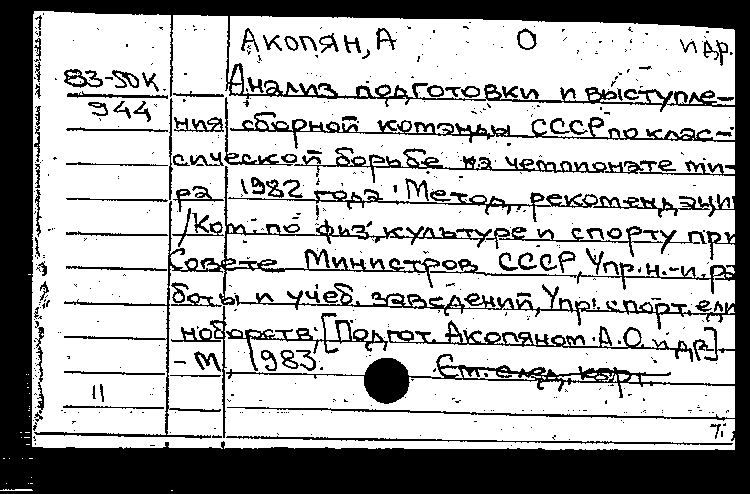 Акопян, А О и др.
83-50К Анализ подготовки и выступле-
944 ния сборной команды СССР по клас-
сической борьбе на чемпионате ми-
ра 1982 года: Метод. рекомендации
/Ком. по физ. культуре и спорту при
Совете Министров СССР, Упр. н.-и. ра
боты и учеб. заведений, Упр. спорт. еди
ноборств; [Подгот. Акопяном А. О и др].
- М, 1983.
См. след. карт.
11